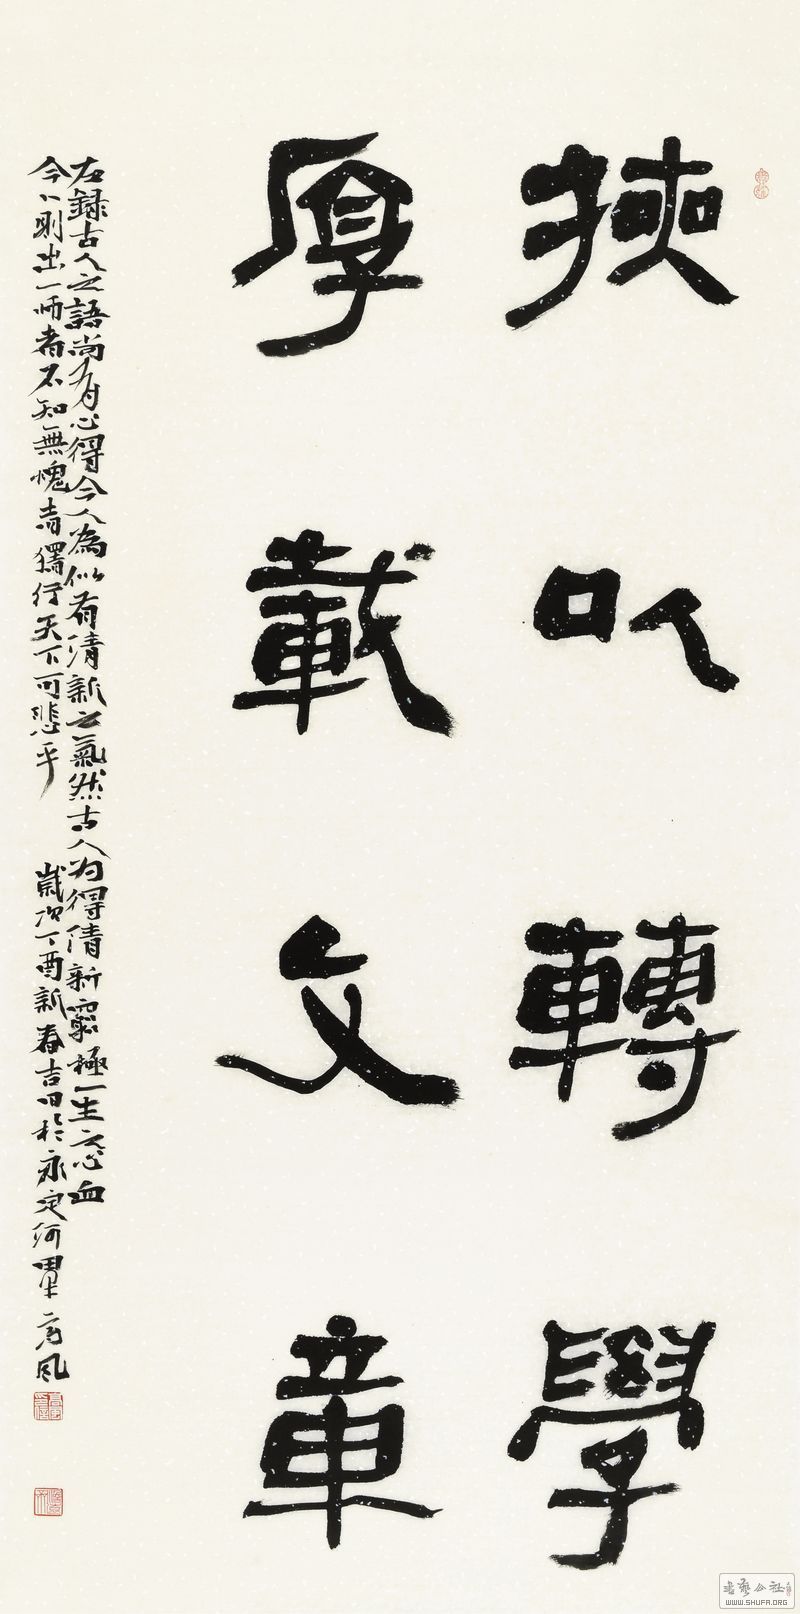 狹以轉學
厚載文章
左錄古人之語尚有心得今人為似有清新之氣然古人为得清新窮極一生之心血
今人則出一師者不知無愧者獨行天下可悲乎
歲次丁酉新春吉日於永定河畔高風
书艺公社
WWW.SHUFA.ORG